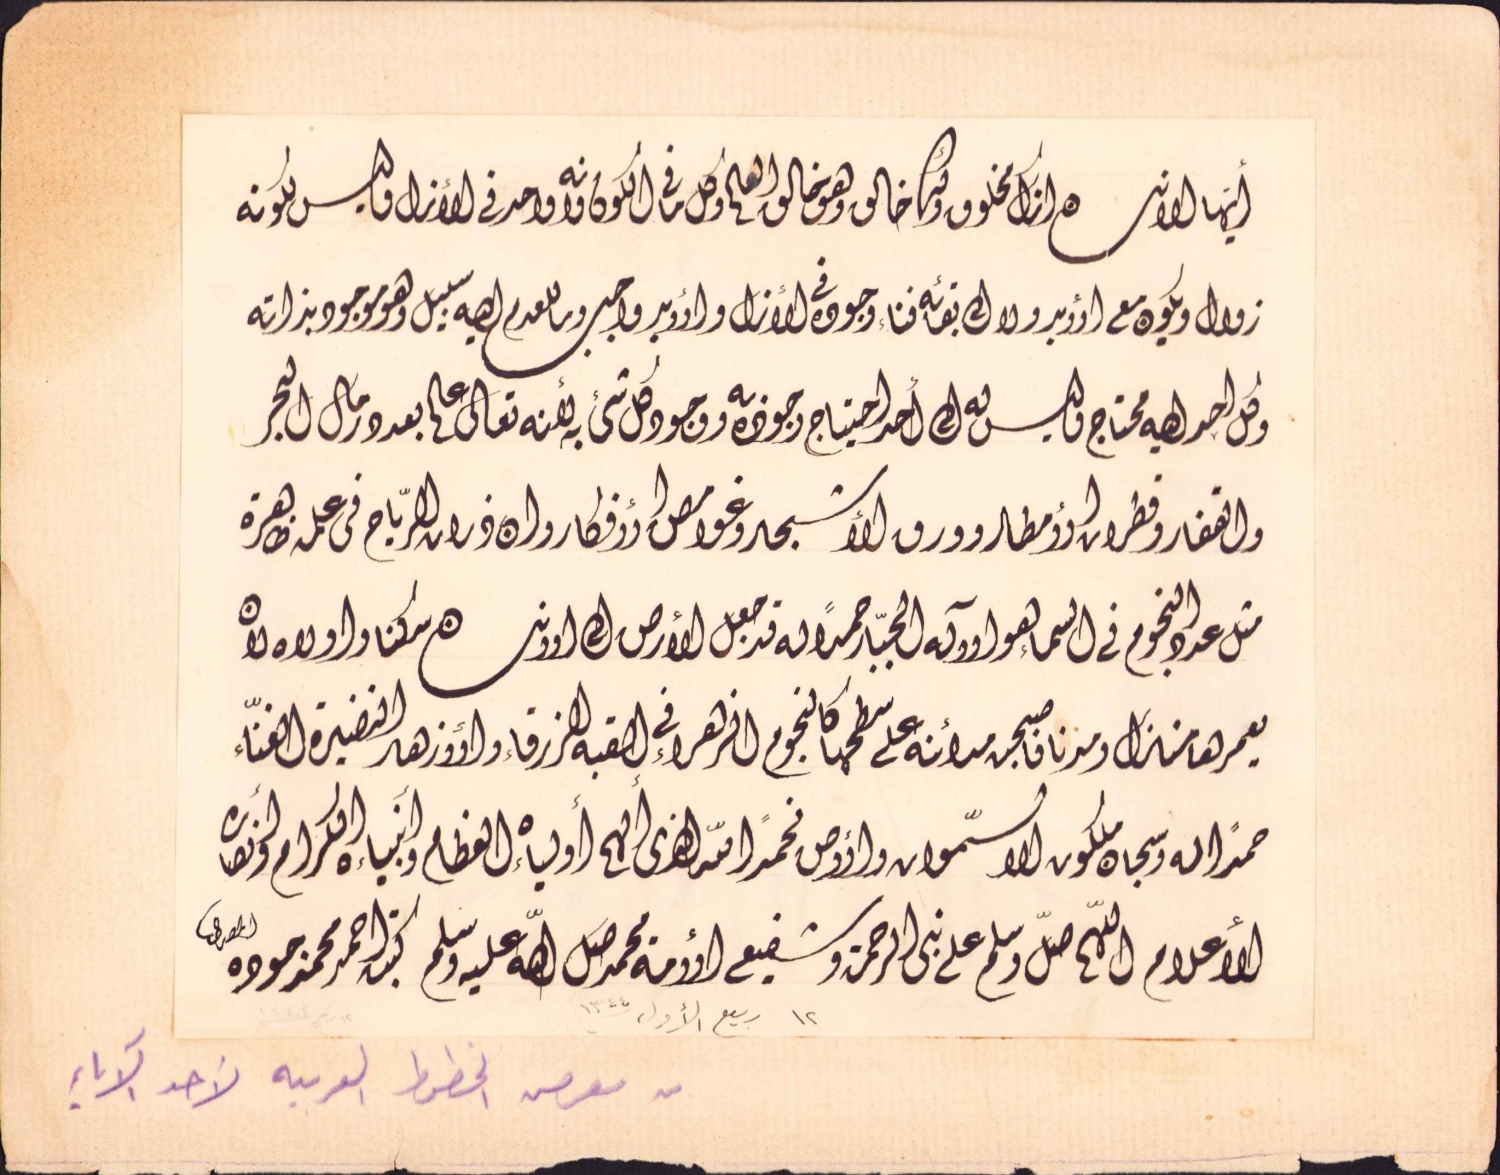 أيها الانسان انك مخلوق ولك خالق وهو خالق العالم وكل ما في الكون وانه واحد في الأزل وليس لكونه
زوال ويكون مع الأبد ولا الى بقائه فناء وجوده في الأزل والأبد واجب وما للعدم اليه سبيل وهو موجود بذاته
وكل احد اليه محتاج وليس له الى أحد احتياج وجوده به ووجود كل شئ به لأنه تعالى عالم بعدد رمال البحر
والقفار وقطرات الأمطار وورق الأشجار وغوامض الأفكار وان ذرات الرياح في علمه ظاهرة
مثل عدد النجوم في السماء هو الآله الجبار حمدًا له قد جعل الأرض الى الانسان سكنا والاه لأن
يعمرها منازل ومدنا فاصبحن مدائنه على سطحها كالنجوم الزهراء في القبه الزرقاء والأزهار النضيرة الغنّاء
حمدًا له وسبحان ملكوت السّموات والأرض نحمدًا الله الذي ألهم أولياه العظام وأنبياءه الكرام وأنصاره
الأعلام اللّهم صلّ وسلم على نبى الرحمة وشفيع الأمة محمد صلى الله عليه وسلم كتبه احمد محمد حموده
١٢ ربيع الأول ١٣٤٤
من معرض الخطوط العربيه لأحد الآباء